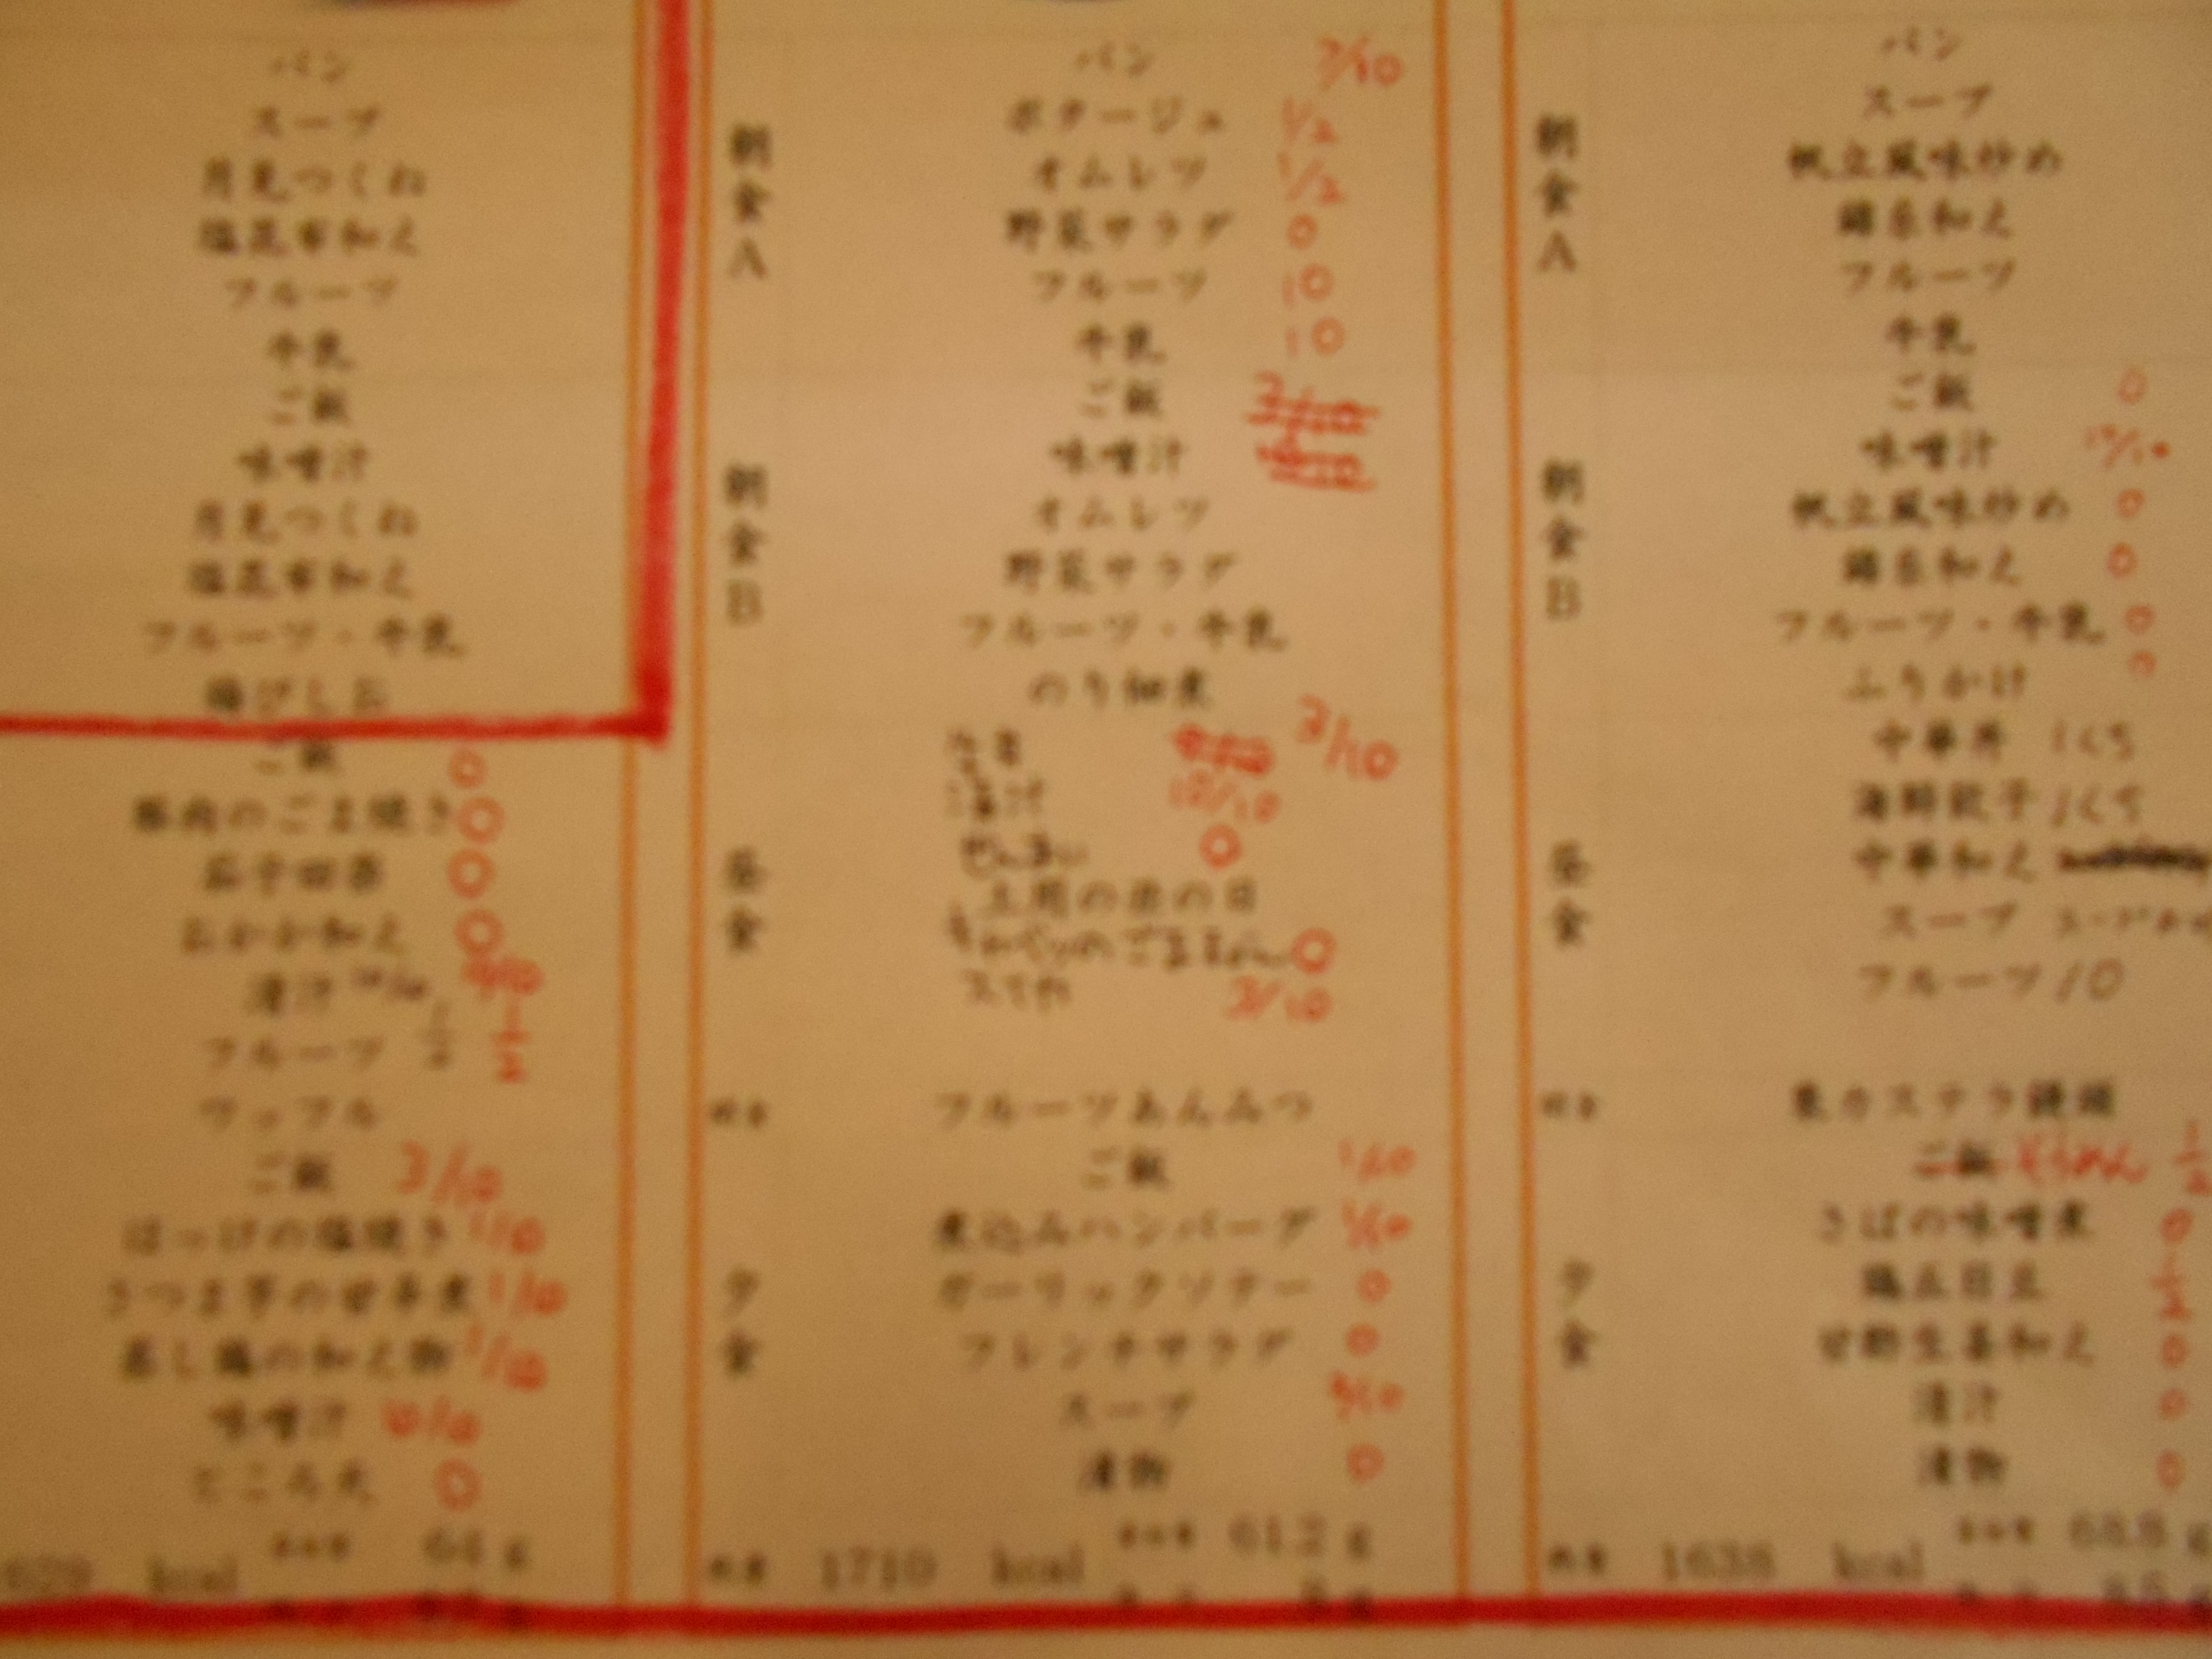 パン
スープ
月見つくね
塩昆布和え
フルーツ
牛乳
ご飯
味噌汁
月見つくね
塩昆布和え
フルーツ・牛乳
梅びしお
ご飯 0
豚肉のごま焼き 0
0
おかか和え 0
清汁
フルーツ 1/2 1/2
ワッフル
ご飯 3/10
ほっけの塩焼き 1/10
さつま芋の甘辛煮 1/10
蒸し鶏の和え物 1/10
味噌汁 10/10
ところ天 0
kcal 64 g
朝食A
パン 3/10
ポタージュ 1/2
オムレツ 1/2
野菜サラダ 0
フルーツ 10
牛乳 10
朝食B
ご飯
味噌汁
オムレツ
野菜サラダ
フルーツ・牛乳
のり佃煮
昼食
3/10
清汁 10/10
ぜんまい 0
土用の丑の日
キャベツの 0
スイカ 3/10
フルーツあんみつ
夕食
ご飯 1/10
煮込みハンバーグ 1/10
ガーリックソテー 0
フレンチサラダ 0
スープ
漬物 0
1710 kcal 61.2 g
朝食A
パン
スープ
帆立風味炒め
錦糸和え
フルーツ
牛乳
朝食B
ご飯 0
味噌汁 10/10
帆立風味炒め 0
錦糸和え 0
フルーツ・牛乳 0
ふりかけ 0
昼食
中華丼 1くち
海鮮餃子 1くち
中華和え
スープ
フルーツ 10
栗カステラ饅頭
夕食
ご飯 そうめん 1/2
さばの味噌煮 0
1/2
甘酢生姜和え 0
清汁 0
漬物 0
1638 kcal